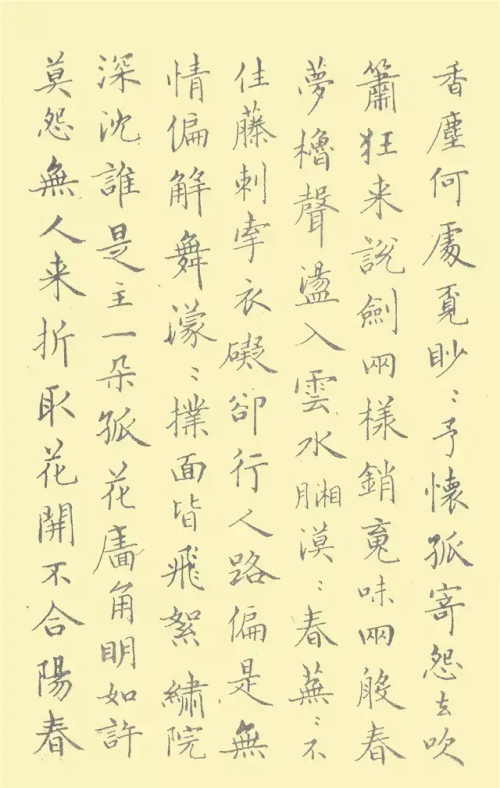 香塵何處覓眇〻予懷孤寄怨去吹
簫狂来說劍兩樣銷䰟味兩般春
夢櫓聲盪入雲水 湘月 漠〻春蕪〻不
住藤刺牽衣礙卻行人路偏是無
情偏解舞濛〻撲面皆飛絮 繡院
深沈誰是主一朵孤花牆角明如許
莫怨無人来折取花開不合陽春